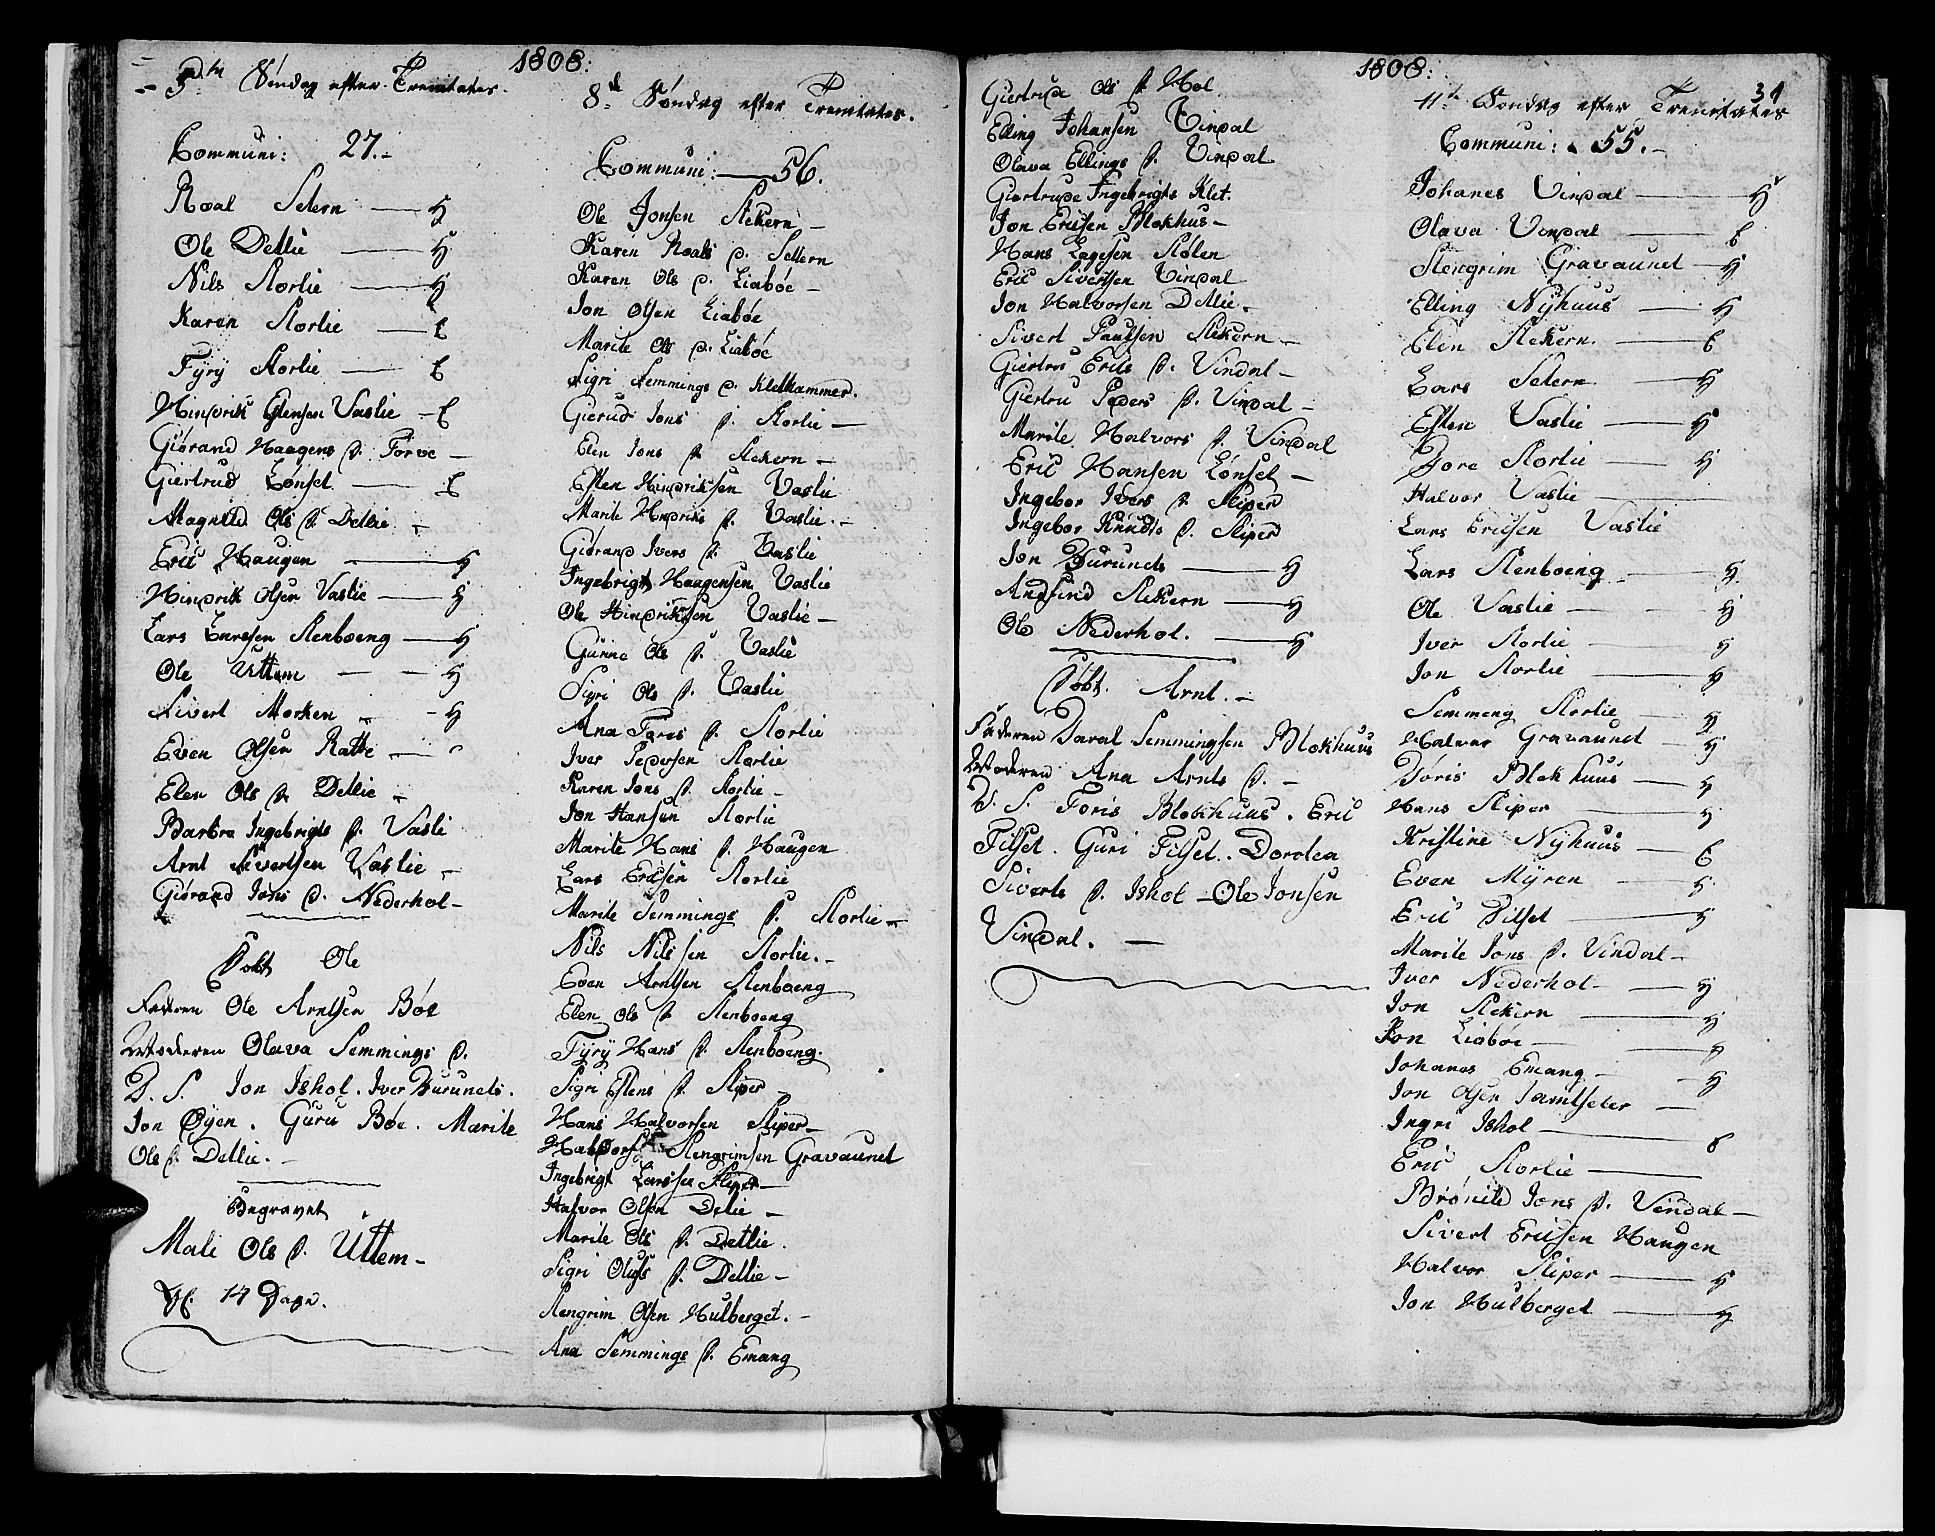 1808:
5te Søndag efter Trenitates.
Communi: 27.-
Roal Setern — H
Ole Dettlie — H
Nils Storlie — H
Karen Storlie — E
Fyry Storlie — E
Hindrik Estensen Vaslie — E
Giørand Haagens D. Forve —
Giertrud Lønset — E
Magnild Ols D. Detlie —
Eric Haugen — H
Hindrik Olsen Vaslie — H
Lars Larssen Stenboeng — H
Ole Uttem — H
Sivert Morken — H
Even Olsen Ratte —
Elen Ols D. Detlie —
Barbra Ingebrigts D. Vasli
Arnt Sivertsen Vaslie —
Giørand Jons D. Nederhol —
Døbt Ole
Faderen Ole Arntsen Böe
Moderen Olava Semmings D.
D. S. Jon Ishol. Iver Burunets.
Jon Øyen. Guru Böe. Marite
Ols D. Detlie. —
Begravet
Mali Ols D. Uttem —
14 Dage.
8de Søndag efter Trenitates.
Communi: — 56.
Ole Jonsen Stekern —
Karen Roals D. Settern
Karen Ols D. Liabøe —
Jon Olsen Liabøe
Marite Ols D. Liabøe
Sigri Semmings D. Kletkammer.
Gierud Jons D. Storlie —
Elen Jons D. Stekern —
Esten Hindriksen Vaslie
Marite Hindriks D. Vaslie. —
Giørand Ivers D. Vaslie
Ingebrigt Haagensen Vaslie
Ole Hindriksen Vaslie —
Gunna Ols D. Vaslie
Sigri Ols D. Vaslie
Ana Tores D. Storlie
Iver Pedersen Storlie
Karen Jons D. Storlie —
Jon Hansen Storlie
Marite Hans D. Haugen
Lars Ericsen Storlie
Marite Semmings D. Storlie —
Nils Nilssen Storlie. —
Even Arntsen Stenboeng
Elen Ols D. Stenboeng
Fyry Hans D. Stenboeng.
Sigri Estens D. Sliper —
Hans Halvorsen Sliper —
Stengrimsen Gravaunet
Ingebrigt Larssen Sliper —
Halvor Olsen Detlie —
Marite Ols D. Detlie.
Sigri Olufs D. Detlie —
Stengrim Olsen Hulberget. —
Ana Semmings D. Emang
1808:
34
Giertrude Ols D. Hol
Elling Johansen Vindal
Olava Ellings D. Vindal
Giertrude Ingebrigts Klet.
Jon Ericsen Blokhus —
Hans Lagesen Stølen
Eric Sivertsen Vindal
Jon Halvorsen Detlie.
Sivert Paulsen Stekern —
Giertru Erics D. Vindal —
Giertru Peders D. Vindal —
Marite Halvors D. Vindal
Eric Hansen Lønset —
Ingebor Ivers D. Sliper
Ingebor Knuds D. Sliper
Jon Burunets — H
Andfind Stekern — H
Ole Nederhol. — H
Døbt. Arnt. —
Faderen Daral Semmingsen Blokhuus
Moderen Ana Arnts D. —
D. S. Foris Blokhuus. Eric
Filset. Guri Filset. Dorotea
Siverts D. Ishol — Ole Jonsen
Vindal. —
11te Søndag efter Trenitates
Communi: 55. —
Johanes Vindal — H
Olava Vindal — E
Stengrim Gravaunet — H
Elling Nyhuus — H
Elen Stekern. — E
Lars Setern — H
Esten Vaslie — H
Tore Storlie — H
Halvor Vaslie —
Lars Ericsen Vaslie
Lars Stenboeng — H
Ole Vaslie — H
Iver Storlie — H
Jon Storlie — H
Semmeng Storlie — H
Halvor Gravaunet — H
Döris Blokhuus — H
Hans Sliper — H
Kristine Nyhuus — E
Even Myren — H
Eric Filset — H
Marite Jons D. Vindal —
Iver Nederhol — H
Jon Stekern — H
Jon Liabøe — H
Johanes Emang — H
Jon Olsen Tamtseter —
Ingri Ishol — E
Eric Storlie —
Brönild Jons D. Vindal —
Sivert Ericsen Haugen
Halvor Sliper — H
Jon Hulberget — H